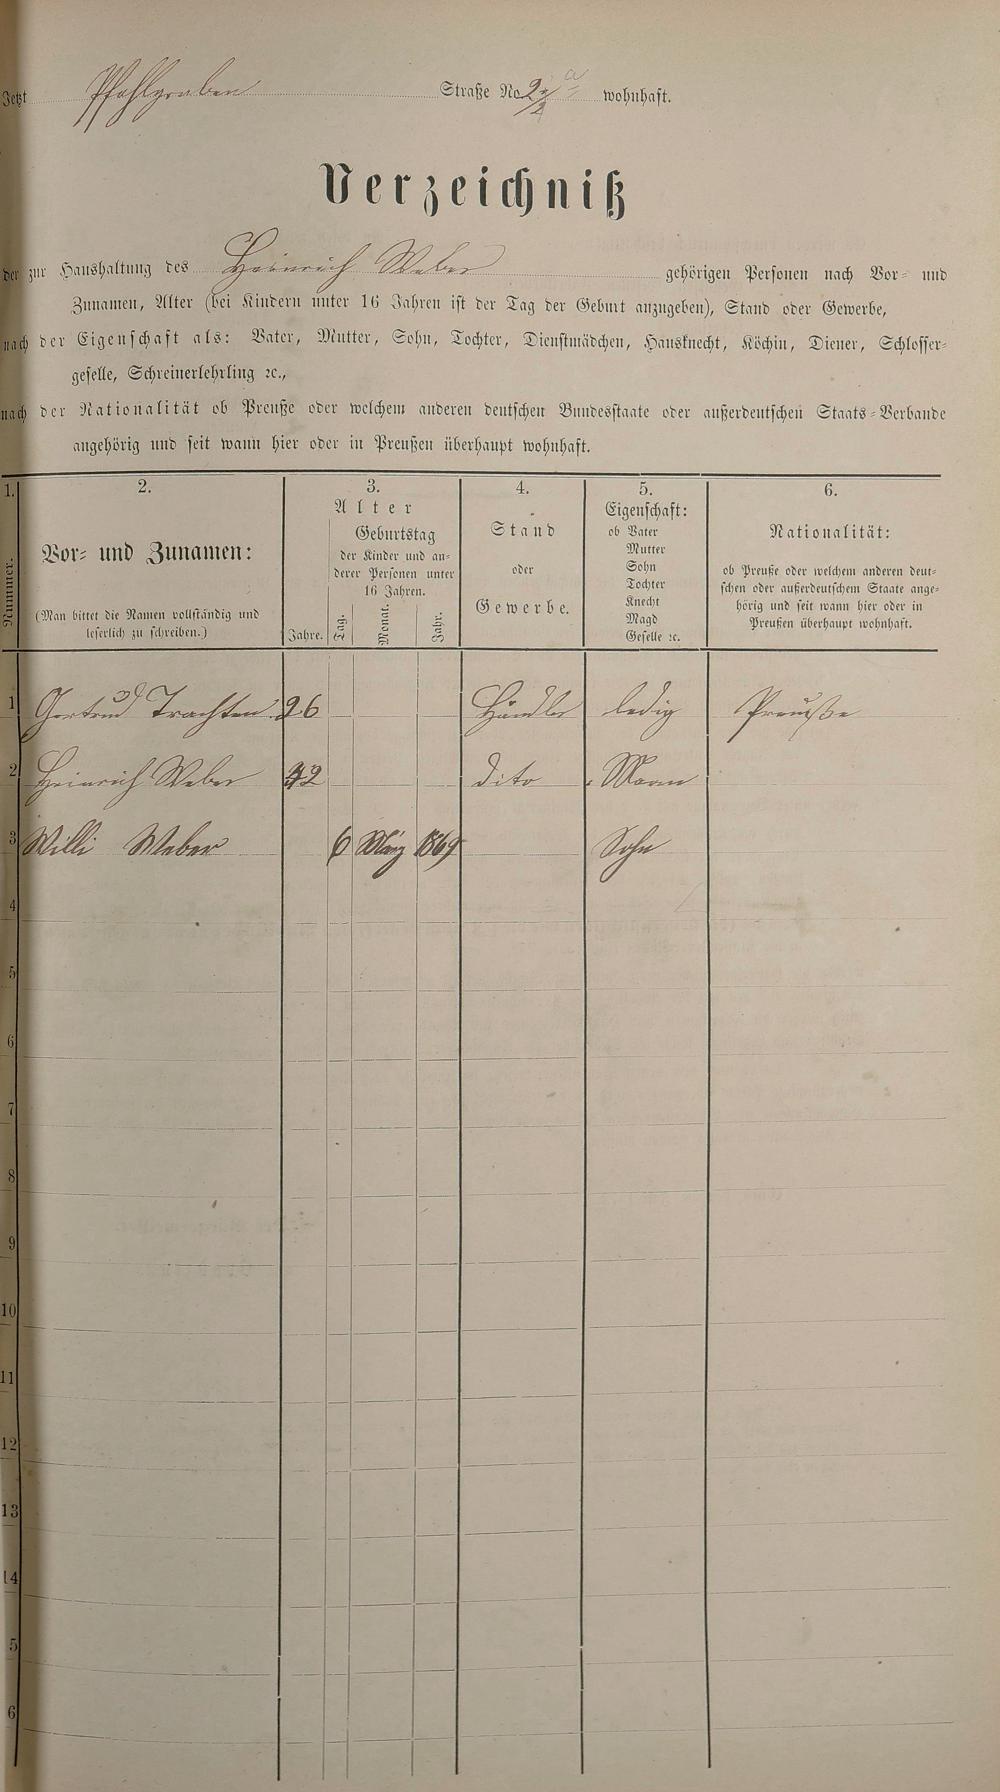 Jetzt Pfahlgraben Straße No. 2 a wohnhaft.
Verzeichniß
der zur Haushaltung des Heinrich Weber gehörigen Personen nach Vor- und
Zunamen, Alter (bei Kindern unter 16 Jahren ist der Tag der Geburt anzugeben), Stand oder Gewerbe,
nach der Eigenschaft als: Vater, Mutter, Sohn, Tochter, Dienstmädchen, Hausknecht, Köchin, Diener, Schlosser-
geselle, Schreinerlehrling ꝛc.,
nach der Nationalität ob Preuße oder welchem anderen deutschen Bundesstaate oder außerdeutschen Staats-Verbande
angehörig und seit wann hier oder in Preußen überhaupt wohnhaft.
1. 2. 3. 4. 5. 6.
Nummer.
Vor- und Zunamen:
(Man bittet die Namen vollständig und
leserlich zu schreiben.)
Alter
Jahre.
Geburtstag
der Kinder und an-
derer Personen unter
16 Jahren.
Tag. Monat. Jahr.
Stand
oder
Gewerbe.
Eigenschaft:
ob Vater
Mutter
Sohn
Tochter
Knecht
Magd
Geselle ꝛc.
Nationalität:
ob Preuße oder welchem anderen deut-
schen oder außerdeutschem Staate ange-
hörig und seit wann hier oder in
Preußen überhaupt wohnhaft.
1 Gertrud Trachten 26 Händler ledig Preuße
2 Heinrich Weber 42 dito Mann
3 Willi Weber 6 März 1869 Sohn
4
5
6
7
8
9
10
11
12
13
14
5
6